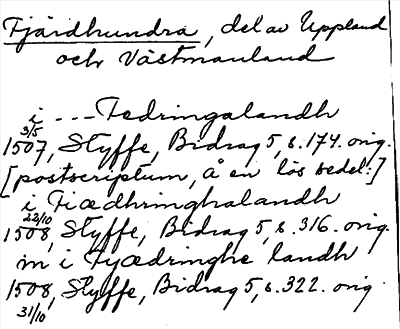 Fjärdhundra, del av Uppland
och Västmanland
i --- Fedringalandh
3/5
1507, Styffe, Bidrag 5, s. 174. orig.
[postscriptum, å en lös sedel:]
i Fiædhringhalandh
22/10
1508, Styffe, Bidrag 5, s. 316. orig.
in i Fyædringhe landh
1508, Styffe, Bidrag 5, s. 322. orig.
31/10